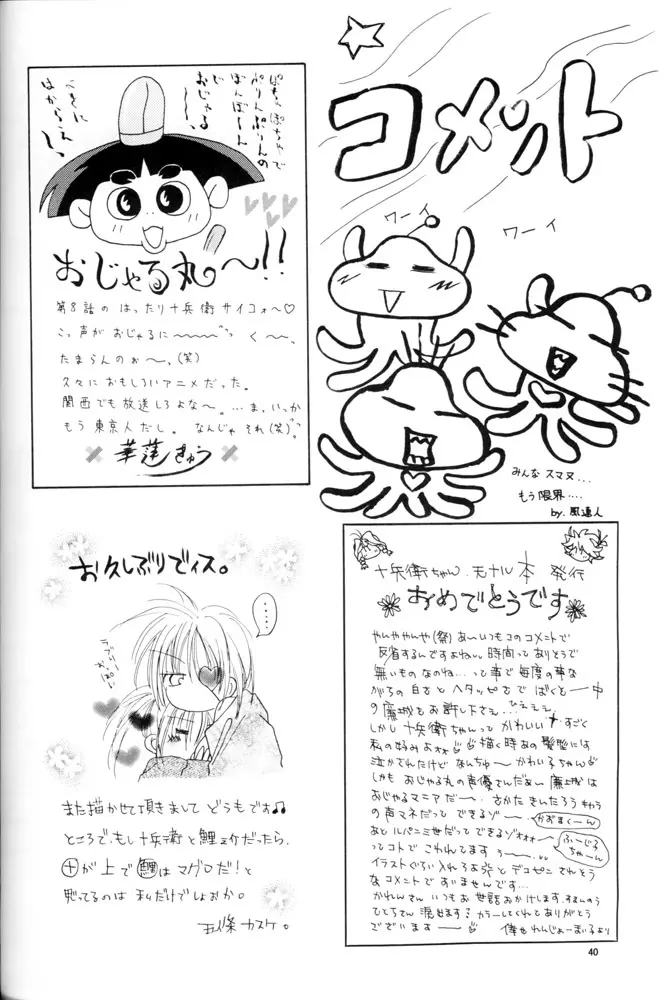 コメント
ワーイ
ワーイ
みんなスマヌ...
もう限界....
by.風道人
ぽちゃぽちゃで
ぷりんぷりんの
ぼんぼーん
じゃ、
おじゃる
よきに
はからえ〜、
おじゃる丸〜!!
第8話の はったり十兵衛サイコォ〜♡
こっ声が おじゃるに〜〜〜〜 く〜〜、
たまらんのぉ〜〜、(笑)
久々に おもしろいアニメだった。
関西でも放送しろよな〜。...ま、いっか
もう東京人だし。なんじゃ それ(笑)
華蓮きゅう
お久しぶりでィス。
....
ラブリー
っぽい
また描かせて頂きまして どうもです♫
ところで、もし十兵衛と鯉之介だったら、
㊉が上で鯉はマグロだ!と
思ってるのは 私だけでしょおか。
五條 カスケ。
十兵衛ちゃん.モナル本 発行
おめでとうです
やんややんや(祭) あ〜いつもコのコメントで
反省するんですよねい。時間ってありそうで
無いものなのね...って事で毎度の事な
がらの 白さと ヘタッピさで ばくと一中
の廉城をお許し下さぇ...ひえぇぇ
しかし 十兵衛ちゃんって かわいいすごく
私の好みよォ 描く時あの髪型には
泣かされたけど なんちゅ〜 かわい子ちゃん
しかも おじゃる丸の声優さんだぁ〜 廉城は
おじゃるマニアだ〜、さかた きんたろうちゃう
の声マネだって できるゾ〜
かおまくーん
あと ルパン三世だって できるゾォォォ
ふーじこ
ちゃーん
ってコトで こわれてます う〜〜、
イラストぐらい入れろよ と デコピン されそう
な コメントで すいません です...
かれんさん いつも お世話おかけします。
ひとちさん 混めます? カラーしてくれて ありがとう
ございます〜
偉せ れんじょーまい子より
40